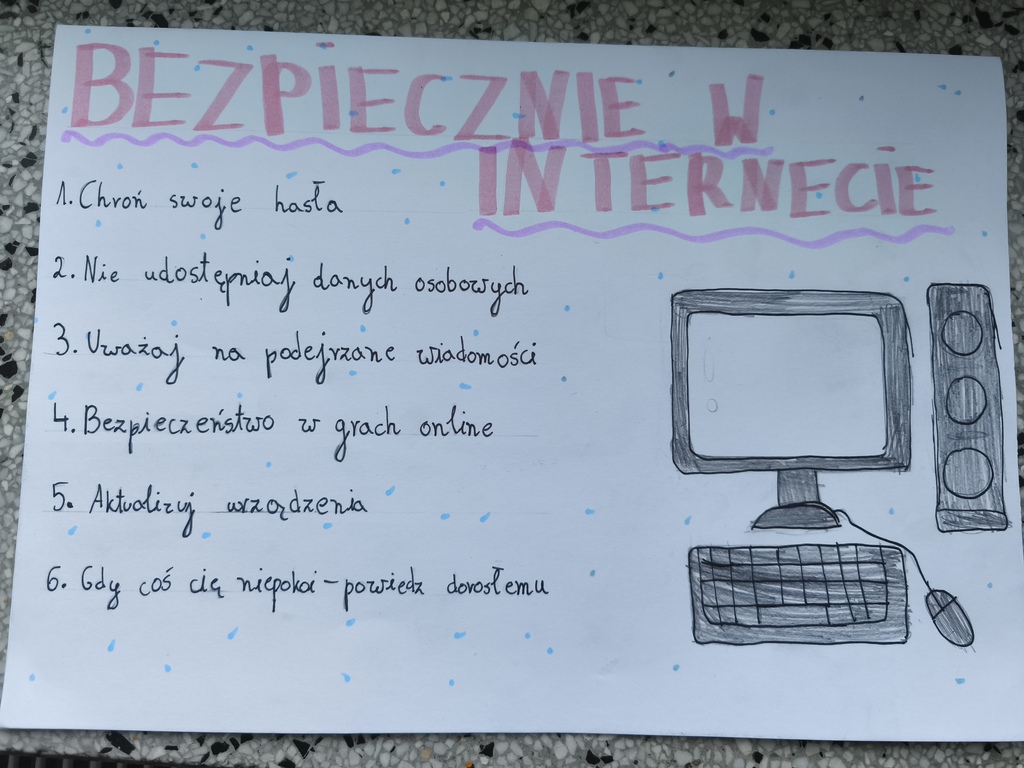 BEZPIECZNIE W
INTERNECIE
1. Chroń swoje hasła
2. Nie udostępniaj danych osobowych
3. Uważaj na podejrzane wiadomości
4. Bezpieczeństwo w grach online
5. Aktualizuj urządzenia
6. Gdy coś cię niepokoi - powiedz dorosłemu